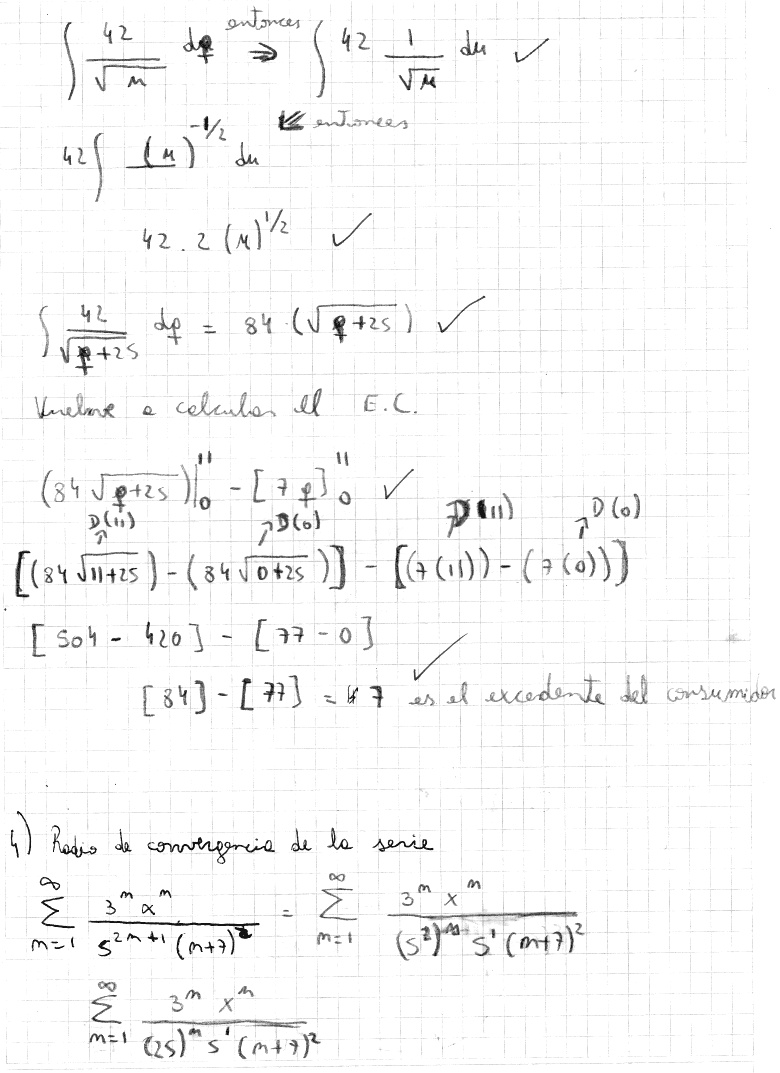 ∫ 42/√u dq entonces ⇒ ∫ 42 1/√u du ✓
⇙ entonces
42 ∫ (u)^{-1/2} du
42 . 2 (u)^{1/2} ✓
∫ 42/√(q+25) dq = 84 . (√(q+25)) ✓
Vuelvo a calcular el E.C.
(84 √(q+25))|₀¹¹ - [7 q]₀¹¹ ✓
D(11) D(0) D(11) D(0)
[(84 √(11+25)) - (84 √(0+25))] - [(7(11)) - (7(0))]
[504 - 420] - [77 - 0]
[84] - [77] = 7 es el excedente del consumidor ✓
4) Radio de convergencia de la serie
∑_{n=1}^{∞} 3^n x^n / 5^{2n+1} (n+7)^2 = ∑_{n=1}^{∞} 3^n x^n / (5^2)^n 5^1 (n+7)^2
∑_{n=1}^{∞} 3^n x^n / (25)^n 5^1 (n+7)^2